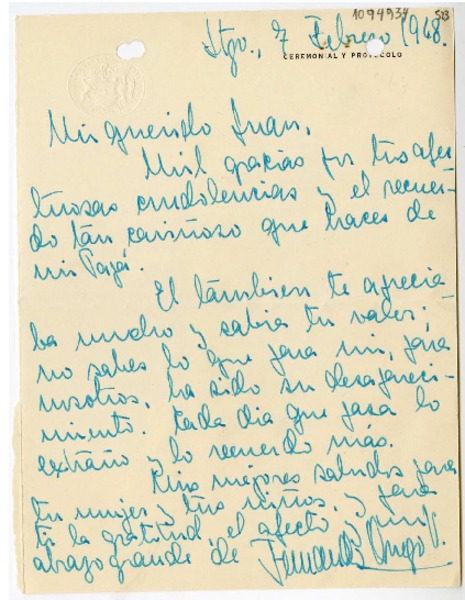 1094934 513
Stgo., 7 Febrero 1948.
CEREMONIAL Y PROTOCOLO
Mi querido Juan,
Mil gracias por tus afec
tuosas condolencias y el recuer-
do tan cariñoso que haces de
mi Papá.
El también te aprecia
ba mucho y sabía tu valer;
no sabes lo que para mí, para
nosotros, ha sido su desapareci-
miento. Cada día que pasa lo
extraño y lo recuerdo más.
Mis mejores saludos para
tu mujer y tus niños, y para
ti la gratitud, el afecto y un
abrazo grande de Fernando